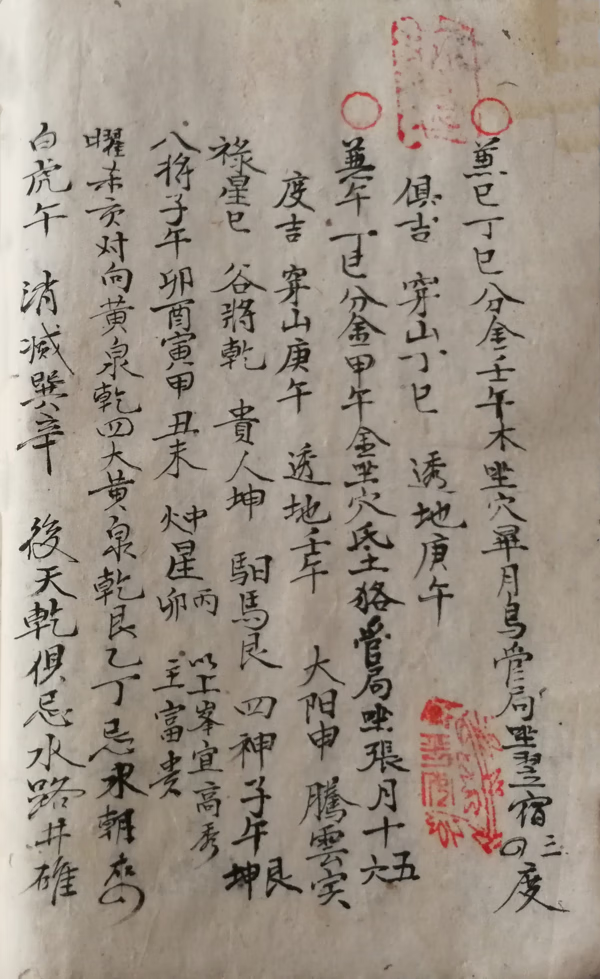 兼巳丁巳分金壬午木坐穴畢月烏管局坐翌宿三四度
俱吉 穿山丁巳 透地庚午
兼午丁巳分金甲午金坐穴氐土狢管局坐張月十五六
度吉 穿山庚午 透地壬午 太阳申 騰雲寅
祿星巳 谷將乾 貴人坤 馹馬艮 四神子午坤艮
八將子午卯酉寅甲丑未 火星卯 中丙 以上峯宜高秀 主富贵
曜杀亥对向黄泉乾四大黄泉乾艮乙丁忌水朝
白虎午 消减巽辛 後天乾俱忌水路井碓